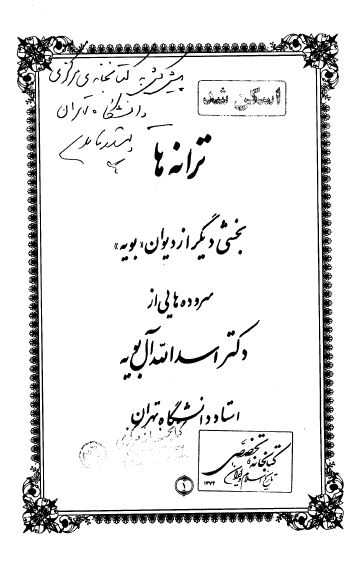 پیشکش به کتابخانه‌ی مرکزی
دانشگاه تهران
اسکن شد
ترانه ها
بخشی دیگر از دیوان «بویه»
سروده هایی از
دکتر اسدالله آل بویه
استاد دانشگاه تهران
کتابخانه تخصصی
تاریخ اسلام و ایران
۱